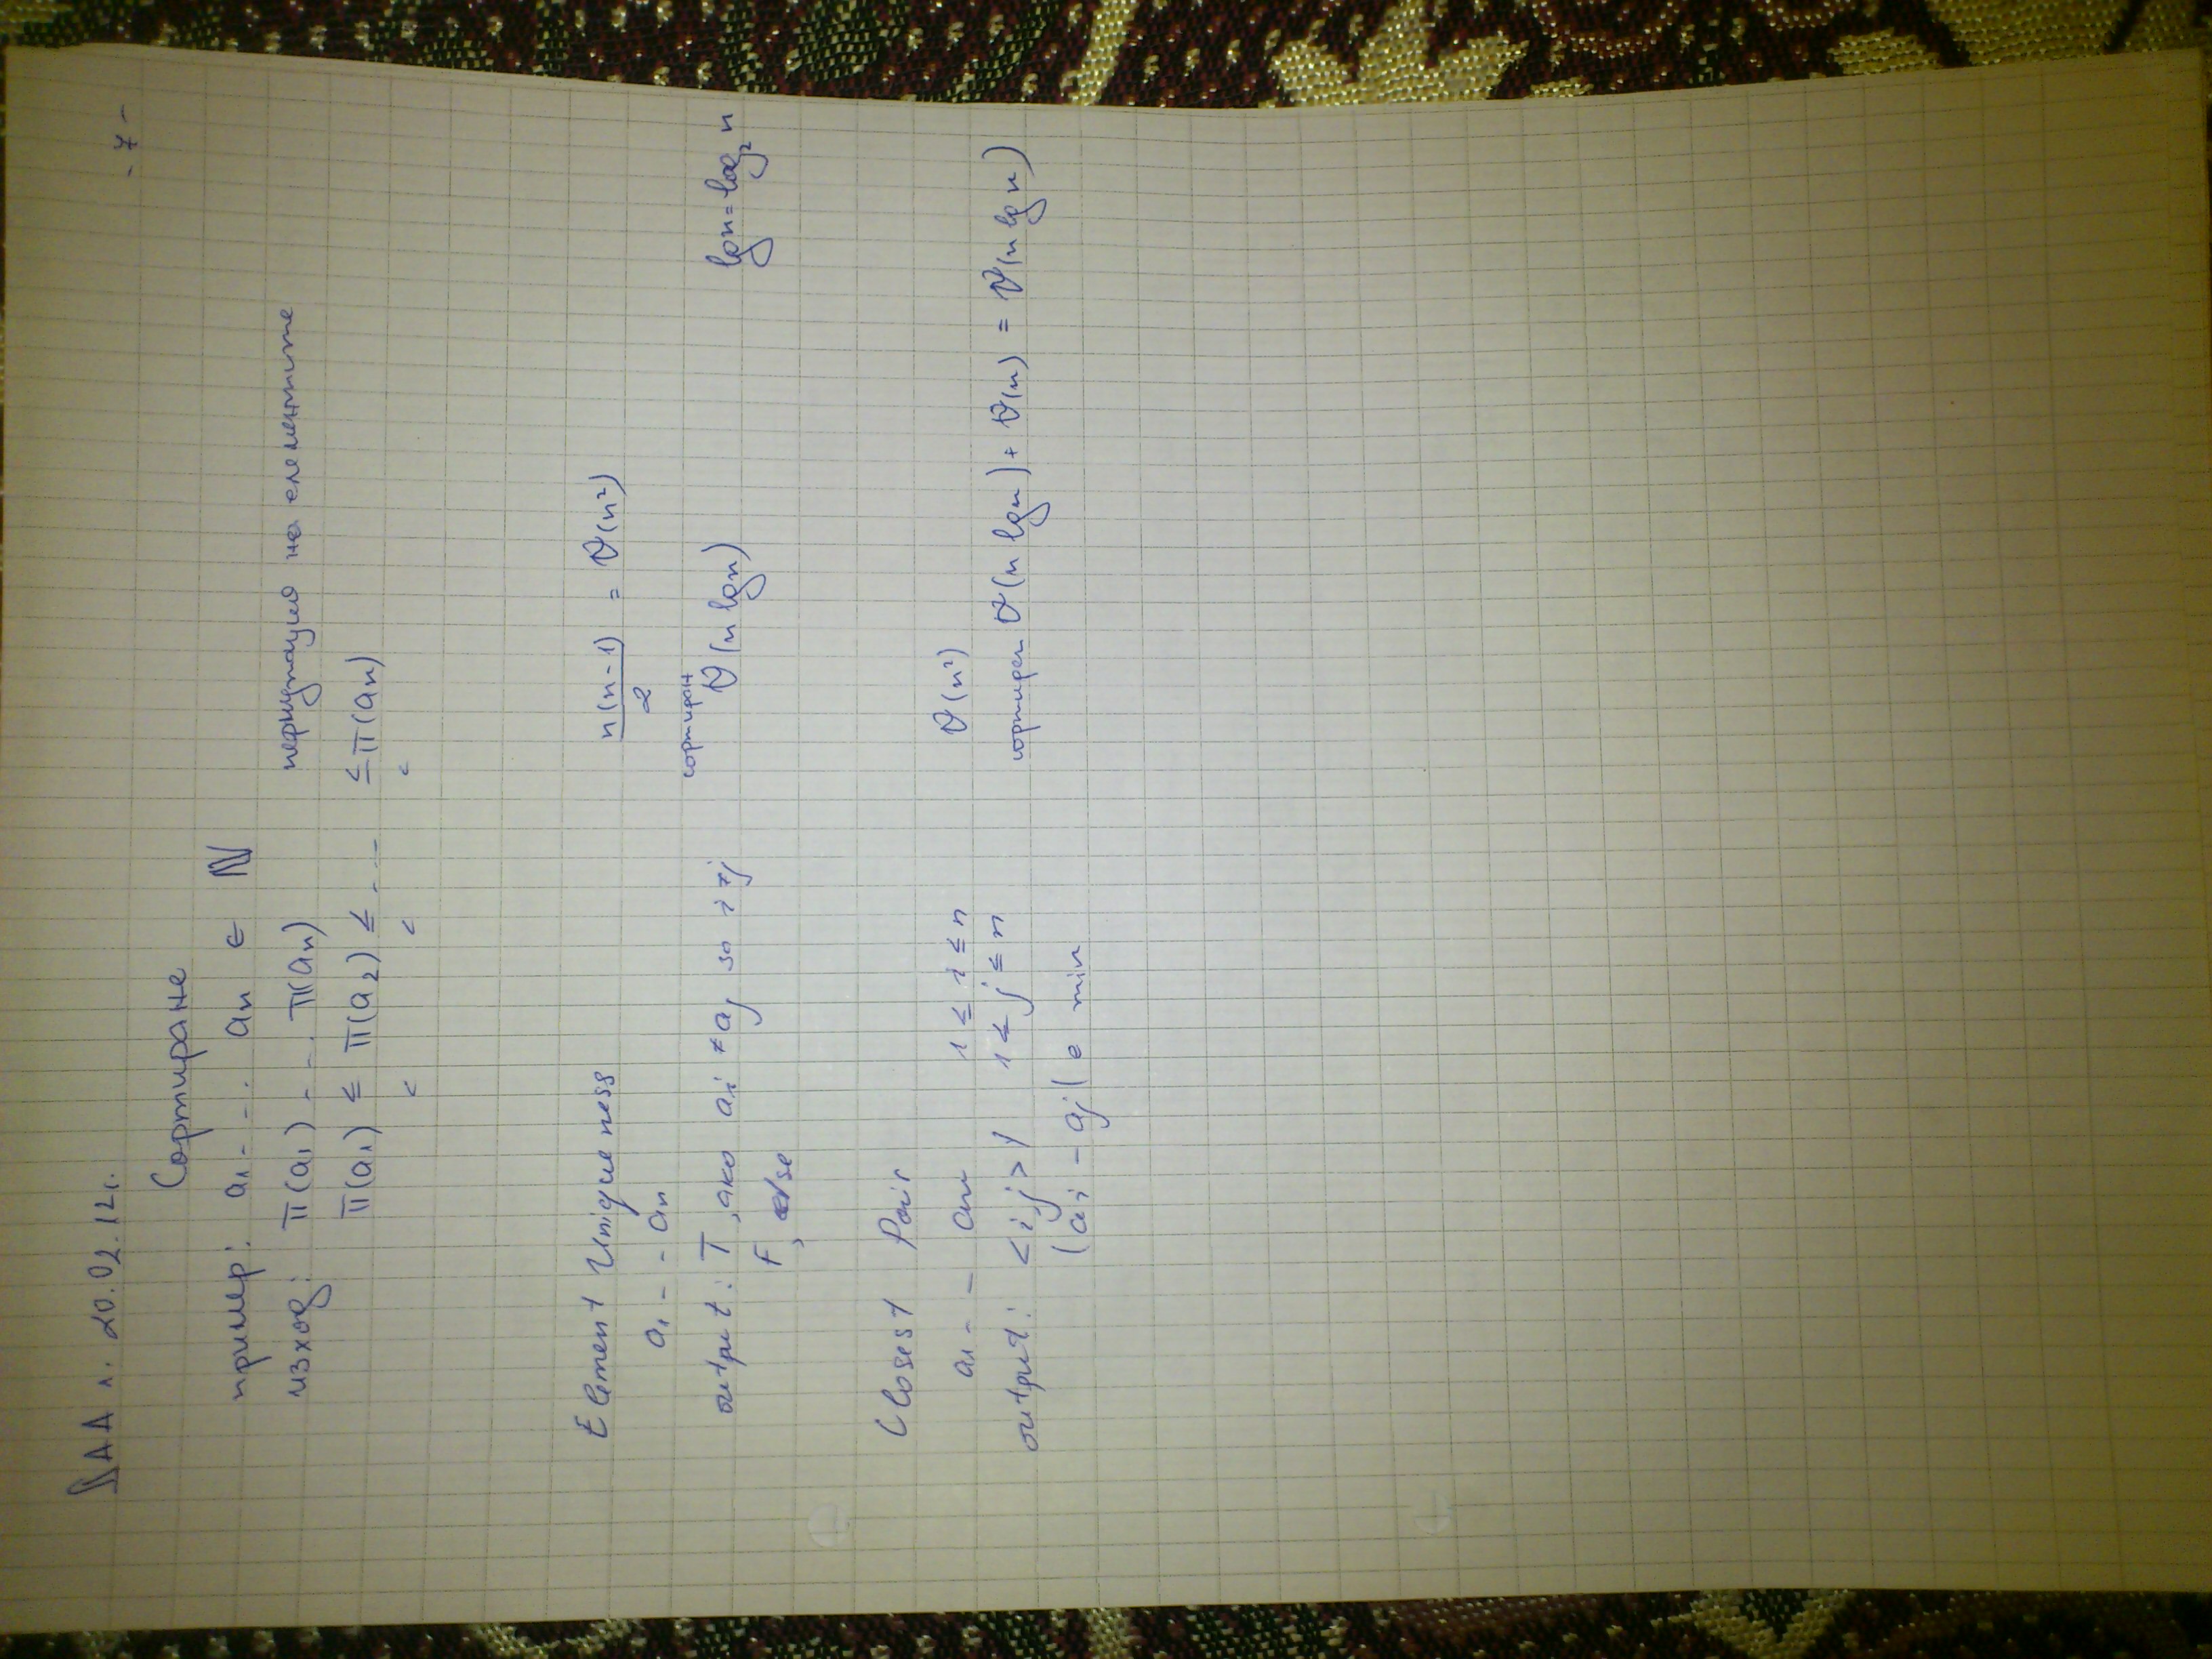 ДАА л. 20.02.12г. - 7 -
Сортиране
пример: a₁ - - . aₙ ∈ ℕ
изход: π(a₁) - - . π(aₙ) пермутация на елементите
π(a₁) ≤ π(a₂) ≤ . - - ≤ π(aₙ)
< < <
Element Uniqueness n(n-1)/2 = ϑ(n²)
a₁ - - aₙ
сортират
output: T, ако aᵢ ≠ aⱼ за i ≠ j ϑ(n lgn) lgn = log₂ n
F, else
Closest Pair
a₁ - - aₙ 1 ≤ i ≤ n ϑ(n²)
output: <i,j> / 1 ≤ j ≤ n сортирам ϑ(n lgn) + ϑ(n) = ϑ(n lg n)
|aᵢ - aⱼ| е min